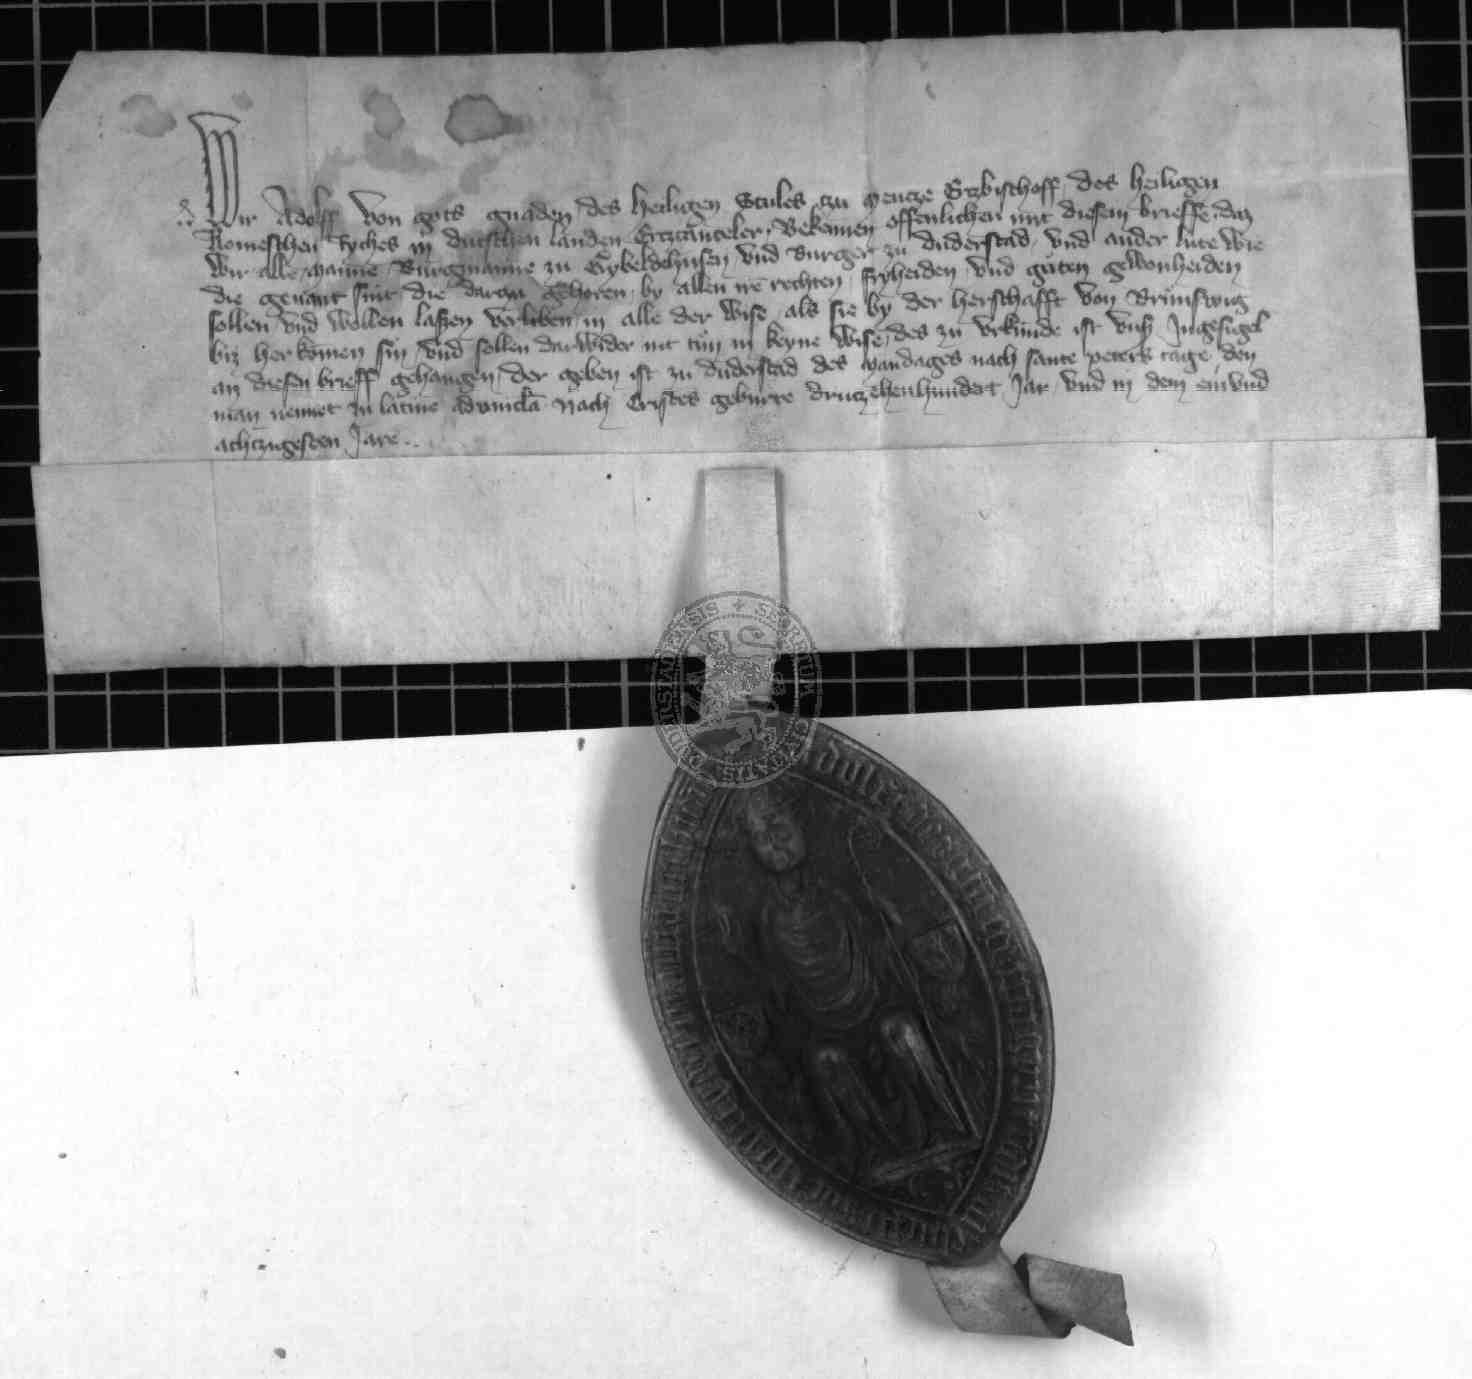 Wir Adolff von gots gnaden des heiligen Stules zu Mentze Ertzbischoff des heiligen
Romeschen ryches in dutschen landen Ertzcanceler Bekennen offenlichen mit diesem brieffe daz
wir alle manne Burgmanne zu Gybeldehusen vnd Burger zu duderstad vnd ander lute wie
die genant sint die daran gehoren by allen iren rechten fryheiden vnd guten gewonheiden
sollen vnd wollen laßen verliben in alle der wise als sie by der herschafft von Brunswig
biz her komen sin vnd sollen darwider nit tun in keyne wise des zu vrkunde ist vnß Ingesigel
an diesen brieff gehangen der geben ist zu duderstad des mandages nach sante peters tage den
man nennet zu latine advincla Nach Cristes geburte drutzehenhundert Jar vnd in dem einvnd
achtzigesten Jare
SECRETUM CIVITATIS DUDERSTADENSIS